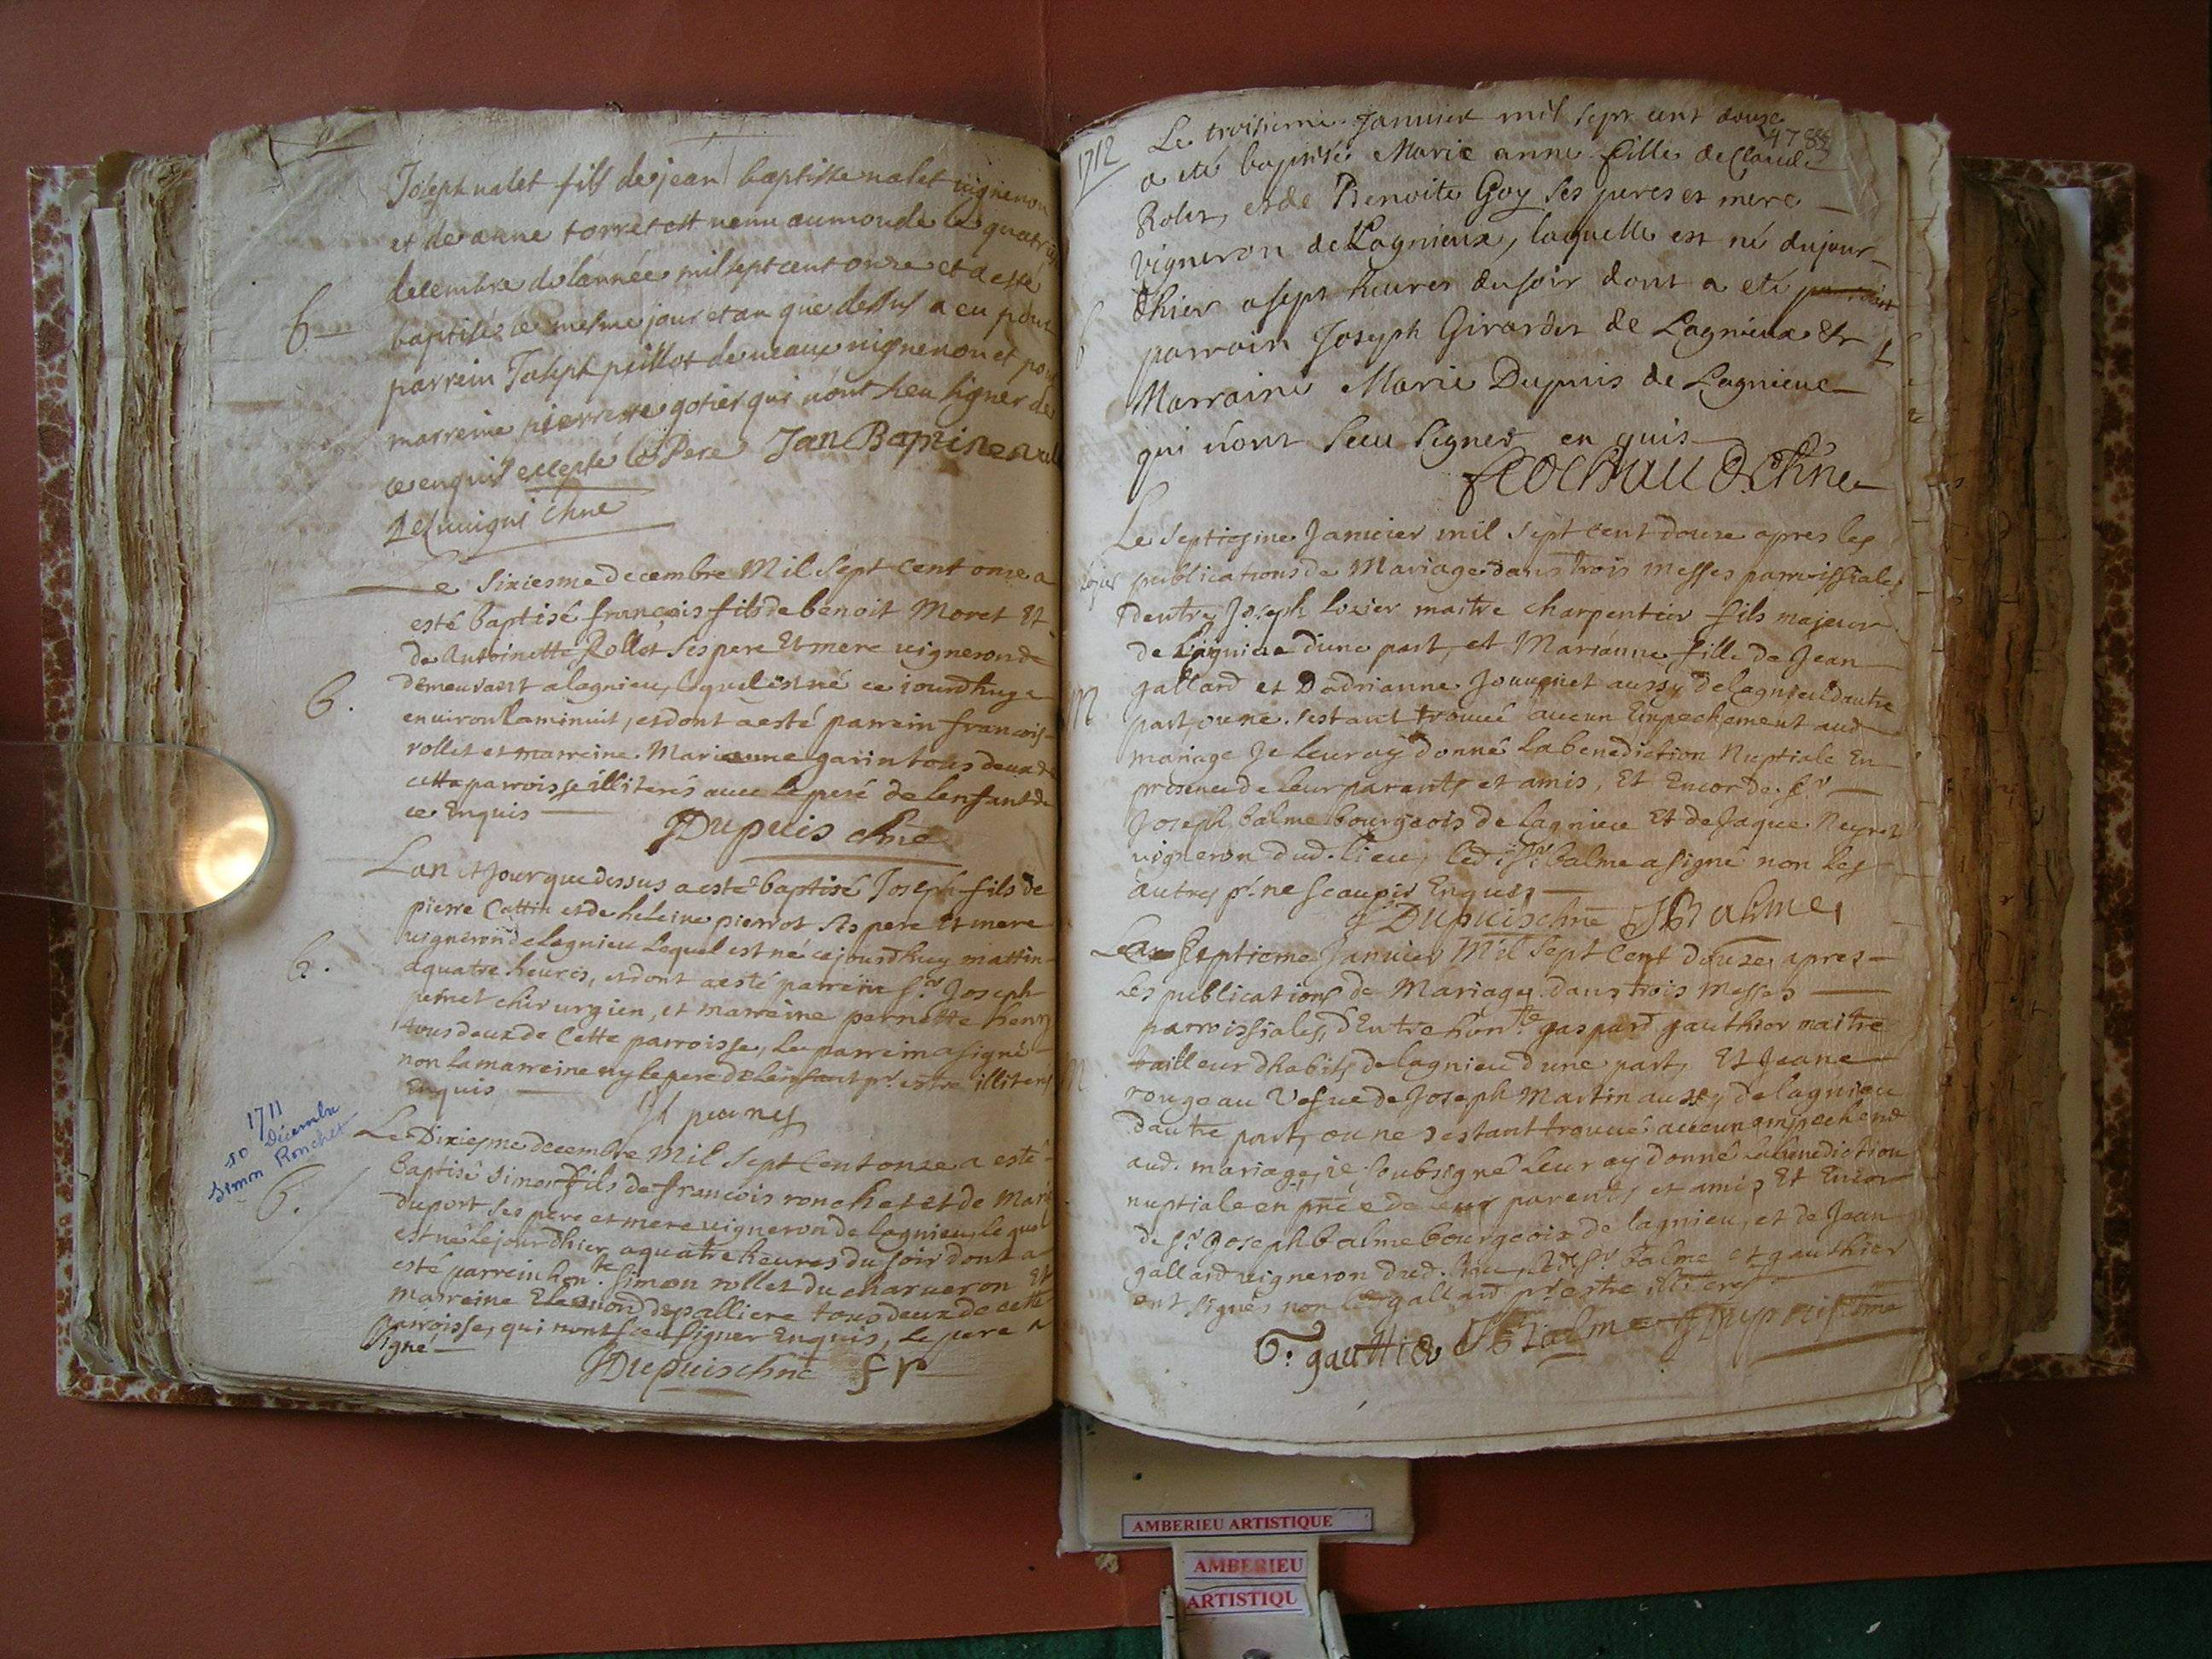 Joseph valet fils de jean baptiste valet vigneron
et de anne torret est venu au monde le quatrie
decembre de l'année mil sept cent onze et a esté
b
baptisé le mesme jour et an que dessus a eu pour
parrein Joseph peillot de veaux vigneron et pour
marreine pierrette gotier qui n'ont sceu signer de
ce enquis excepté le Pere Jan Baptiste val
chne
Le Sixiesme decembre Mil Sept Cent onze a
esté baptisé françois fils de benoit Moret Et
de Antoinette Rollet ses pere Et mere vigneron de
b.
demeurant a lagnieu, lequel est né ce iourdhuy a
environ la minuit, et dont a esté parrein francois
rollet et marreine Marianne garin tous deux de
cette parroisse illiterés avec le peré de lenfant de
ce Enquis
Dupuis chne
Lan et Jour que dessus a esté baptisé Joseph fils de
pierre Cottin et de heleine pierrot ses pere Et mere
vigneron de lagnieu lequel est né cejourdhuy mattin
b.
a quatre heures, et dont a esté parrein Sr Joseph
pernet chirurgien, et marreine pernette henry
tous deux de Cette parroisse, le parrein a signé
non la marreine ny le pere de lenfant pr. estre illiterés
Enquis
1711
10 Décembre
Simon Ronchet
Le Dixiesme decembre Mil Sept Cent onze a esté
b.
baptisé Simon fils de francois ronchet et de Marie
duport ses pere et mere vigneron de lagnieu, lequel
est né le jour dhier a quatre heures du soir dont a
esté parrein hon.te Simon rollet du charveron Et
marreine depalliere tous deux de cette
parroisse, qui n'ont sceu signer Enquis, le pere a
signé
Dupuis chne f r
1712
4788
Le troisieme Janvier mil sept cent douze
a eté baptisée Marie anne fille de Claude
Rolet, et de Benoite Goy ses peres et mere
vigneron de Lagnieux, laquelle est né du jour
d'hier a sept heures du soir dont a eté
b
parrain Joseph Girardet de Lagnieux et
Marraine Marie Dupuis de Lagnieux
qui n'ont sceu signer en quis
Cochaud Chne
Le Septiesme Janvier mil sept cent douze apres les
publications de Mariage dans trois messes parroissiales
dentre Joseph lozier maitre charpentier fils majeur
de Lagnieu d'une part, et Marianne fille de Jean
gallard et Dadrianne Jouvenet aussy de lagnieu dautre
M
part, ou ne sestant trouvé aucun Empechement aud
mariage Je leur ay donné la benediction Nuptiale En
presence de leur parents et amis, Et Encor de Sr
Joseph balme bourgeois de lagnieu Et de Jaque Neyret
vigneron dud. lieu, led. Sr. balme a signé non les
autres pr. ne scavoir Enquis
Dupuis chne J Balme
Le Septieme Janvier Mil Sept Cent douze, apres
Les publications de Mariage dans trois Messes
parroissiales, d'Entre hon.te gaspard gauthier maitre
tailleur dhabits de lagnieu d'une part, Et Jeane
M
rougeau Vefve de Joseph Martin aussy de lagnieu
dautre part, ou ne sestant trouvé aucun empechemt
aud. mariage, je soubsigné leur ay donné la benediction
nuptiale en pnce de leur parents, et amis Et Encor
de Sr. Joseph balme bourgeois de lagnieu, et de Jean
gallard vigneron dud. lieu, led. Sr balme et gauthier
ont signés non led gallard pr. estre illiteré
G. gauttier J Balme Dupuis chne
AMBERIEU ARTISTIQUE
AMBERIEU
ARTISTIQU